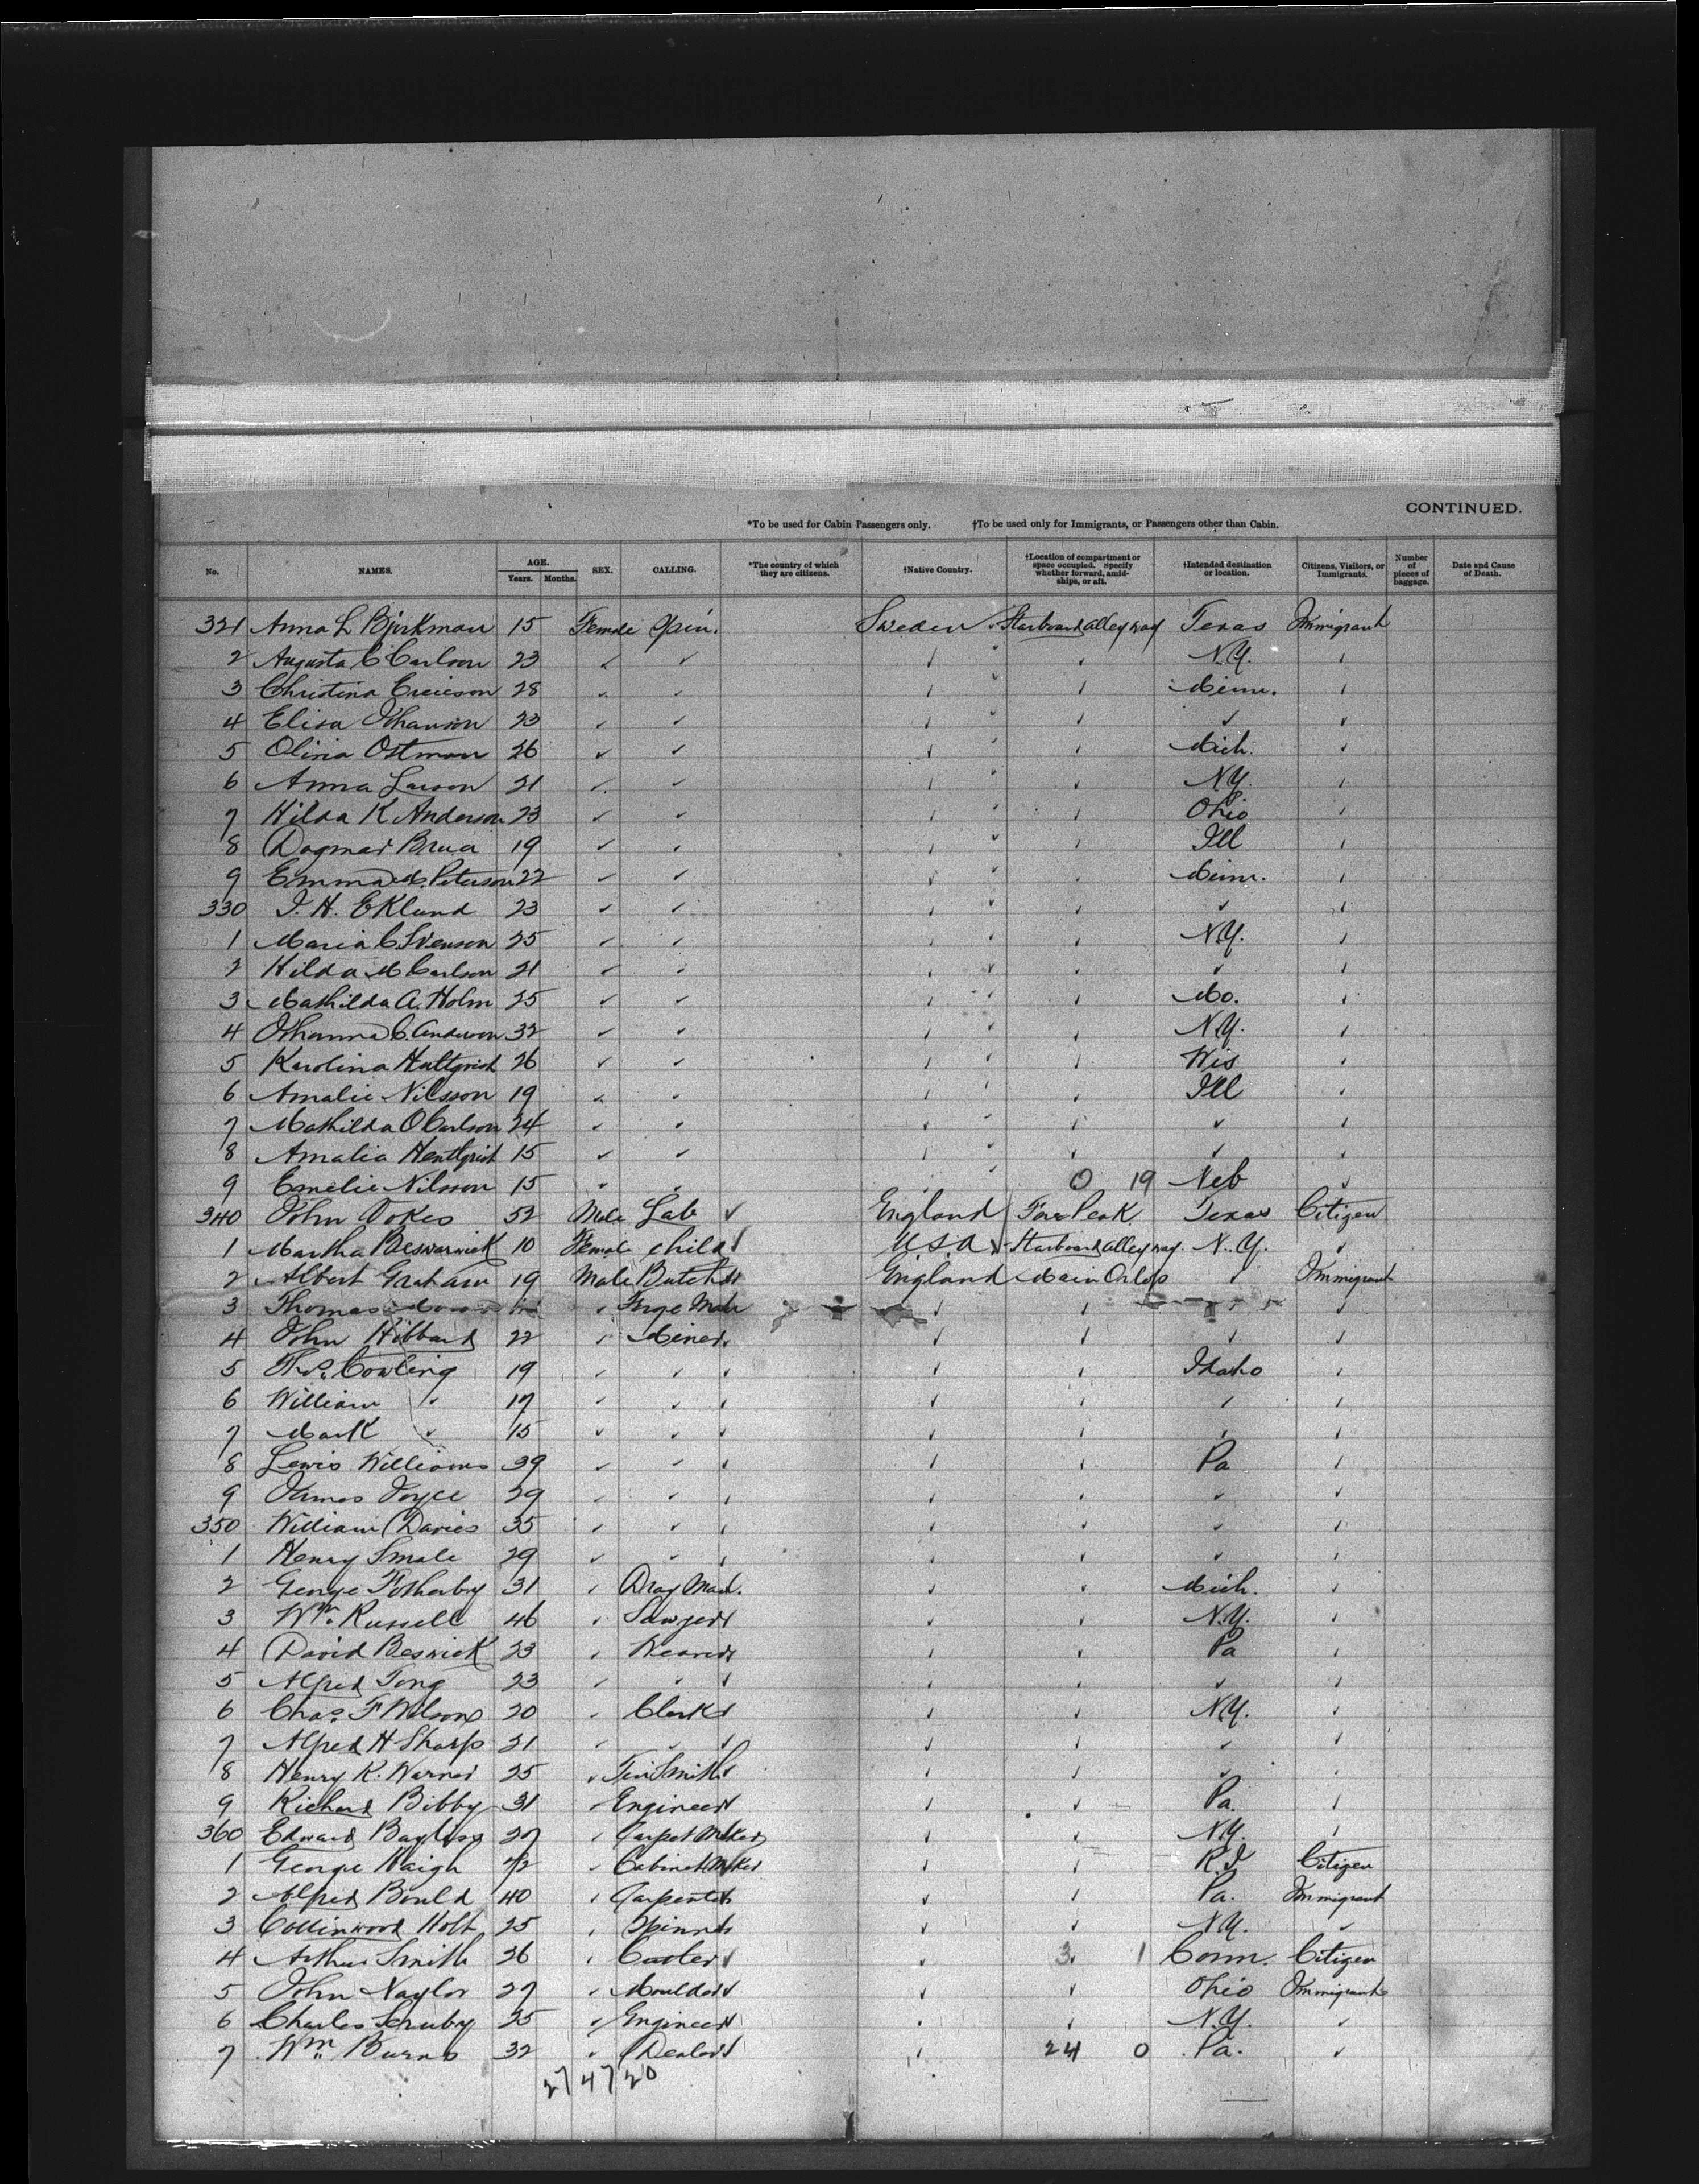 CONTINUED.
*To be used for Cabin Passengers only. †To be used only for Immigrants, or Passengers other than Cabin.
No. NAMES. AGE. Years. Months. SEX. CALLING. *The country of which they are citizens. †Native Country. †Location of compartment or space occupied. Specify whether forward, amidships, or aft. †Intended destination or location. Citizens, Visitors, or Immigrants. Number of pieces of baggage. Date and Cause of Death.
321 Anna L Bjorkman 15 Female Spin. Sweden Starboard alleyway Texas Immigrant
2 Augusta C Carlson 23 ✓ ✓ ✓ ✓ N.Y. ✓
3 Christina Ericson 28 ✓ ✓ ✓ ✓ Minn. ✓
4 Elisa Johanson 23 ✓ ✓ ✓ ✓ ✓ ✓
5 Olivia Ostman 26 ✓ ✓ ✓ ✓ Mich. ✓
6 Anna Larson 21 ✓ ✓ ✓ ✓ N.Y. ✓
7 Hilda K Anderson 23 ✓ ✓ ✓ ✓ Ohio ✓
8 Dagmar Brua 19 ✓ ✓ ✓ ✓ Ill ✓
9 Emma Peterson 22 ✓ ✓ ✓ ✓ Minn. ✓
330 I. H. Eklund 23 ✓ ✓ ✓ ✓ ✓ ✓
1 Maria C. Svenson 25 ✓ ✓ ✓ ✓ N.Y. ✓
2 Hilda M Carlson 21 ✓ ✓ ✓ ✓ ✓ ✓
3 Mathilda A. Holm 25 ✓ ✓ ✓ ✓ Mo. ✓
4 Johanna C. Anderson 32 ✓ ✓ ✓ ✓ N.Y. ✓
5 Karolina Hultgvist 26 ✓ ✓ ✓ ✓ Wis ✓
6 Amalie Nilsson 19 ✓ ✓ ✓ ✓ Ill ✓
7 Mathilda O Carlson 24 ✓ ✓ ✓ ✓ ✓ ✓
8 Amalia 15 ✓ ✓ ✓ ✓ ✓ ✓
9 Emelie Nilsson 15 ✓ ✓ 0 19 Neb ✓
340 John Vokes 52 Male Lab ✓ England Fore Peak Texas Citizen
1 Martha Beswarwick 10 Female child ✓ U.S.A Starboard alleyway. N.Y. ✓
2 Albert Graham 19 Male Butcher England Main Orlop ✓ Immigrant
3 Thomas ✓ ✓ ✓ ✓
4 John Hibbard 22 ✓ Miner ✓ ✓ ✓ ✓
5 Thos. Cowling 19 ✓ ✓ ✓ ✓ Idaho ✓
6 William ✓ 17 ✓ ✓ ✓ ✓ ✓ ✓
7 Mark ✓ 15 ✓ ✓ ✓ ✓ ✓ ✓
8 Lewis Williams 39 ✓ ✓ ✓ ✓ Pa ✓
9 James Joyce 29 ✓ ✓ ✓ ✓ ✓ ✓
350 William Davies 35 ✓ ✓ ✓ ✓ ✓ ✓
1 Henry Smale 29 ✓ ✓ ✓ ✓ ✓ ✓
2 George Fotherby 31 ✓ Dray Man. ✓ ✓ Mich. ✓
3 Wm. Russell 46 ✓ Sawyer ✓ ✓ N.Y. ✓
4 David Beswick 23 ✓ Weaver ✓ ✓ Pa ✓
5 Alfred Tong 23 ✓ ✓ ✓ ✓ ✓ ✓
6 Chas. F Wilson 20 ✓ Clerk ✓ ✓ N.Y. ✓
7 Alfred H Sharp 21 ✓ ✓ ✓ ✓ ✓ ✓
8 Henry K. Warner 25 ✓ Tin Smith ✓ ✓ ✓ ✓
9 Richard Bibby 31 ✓ Engineer ✓ ✓ Pa. ✓
360 Edward Bayliss 27 ✓ Carpet Maker ✓ ✓ N.Y. ✓
1 George Haigh 42 ✓ Cabinet Maker ✓ ✓ R.I Citizen
2 Alfred Bould 40 ✓ Carpenter ✓ ✓ Pa. Immigrant
3 Collinwood Holt 25 ✓ Spinner ✓ ✓ N.Y. ✓
4 Arthur Smith 26 ✓ Cutler ✓ 3 1 Conn. Citizen
5 John Naylor 27 ✓ Moulder ✓ ✓ Ohio Immigrant
6 Charles Scruby 25 ✓ Engineer ✓ N.Y. ✓
7 Wm. Burns 32 ✓ Dealer ✓ 24 0 Pa. ✓
27 47 20